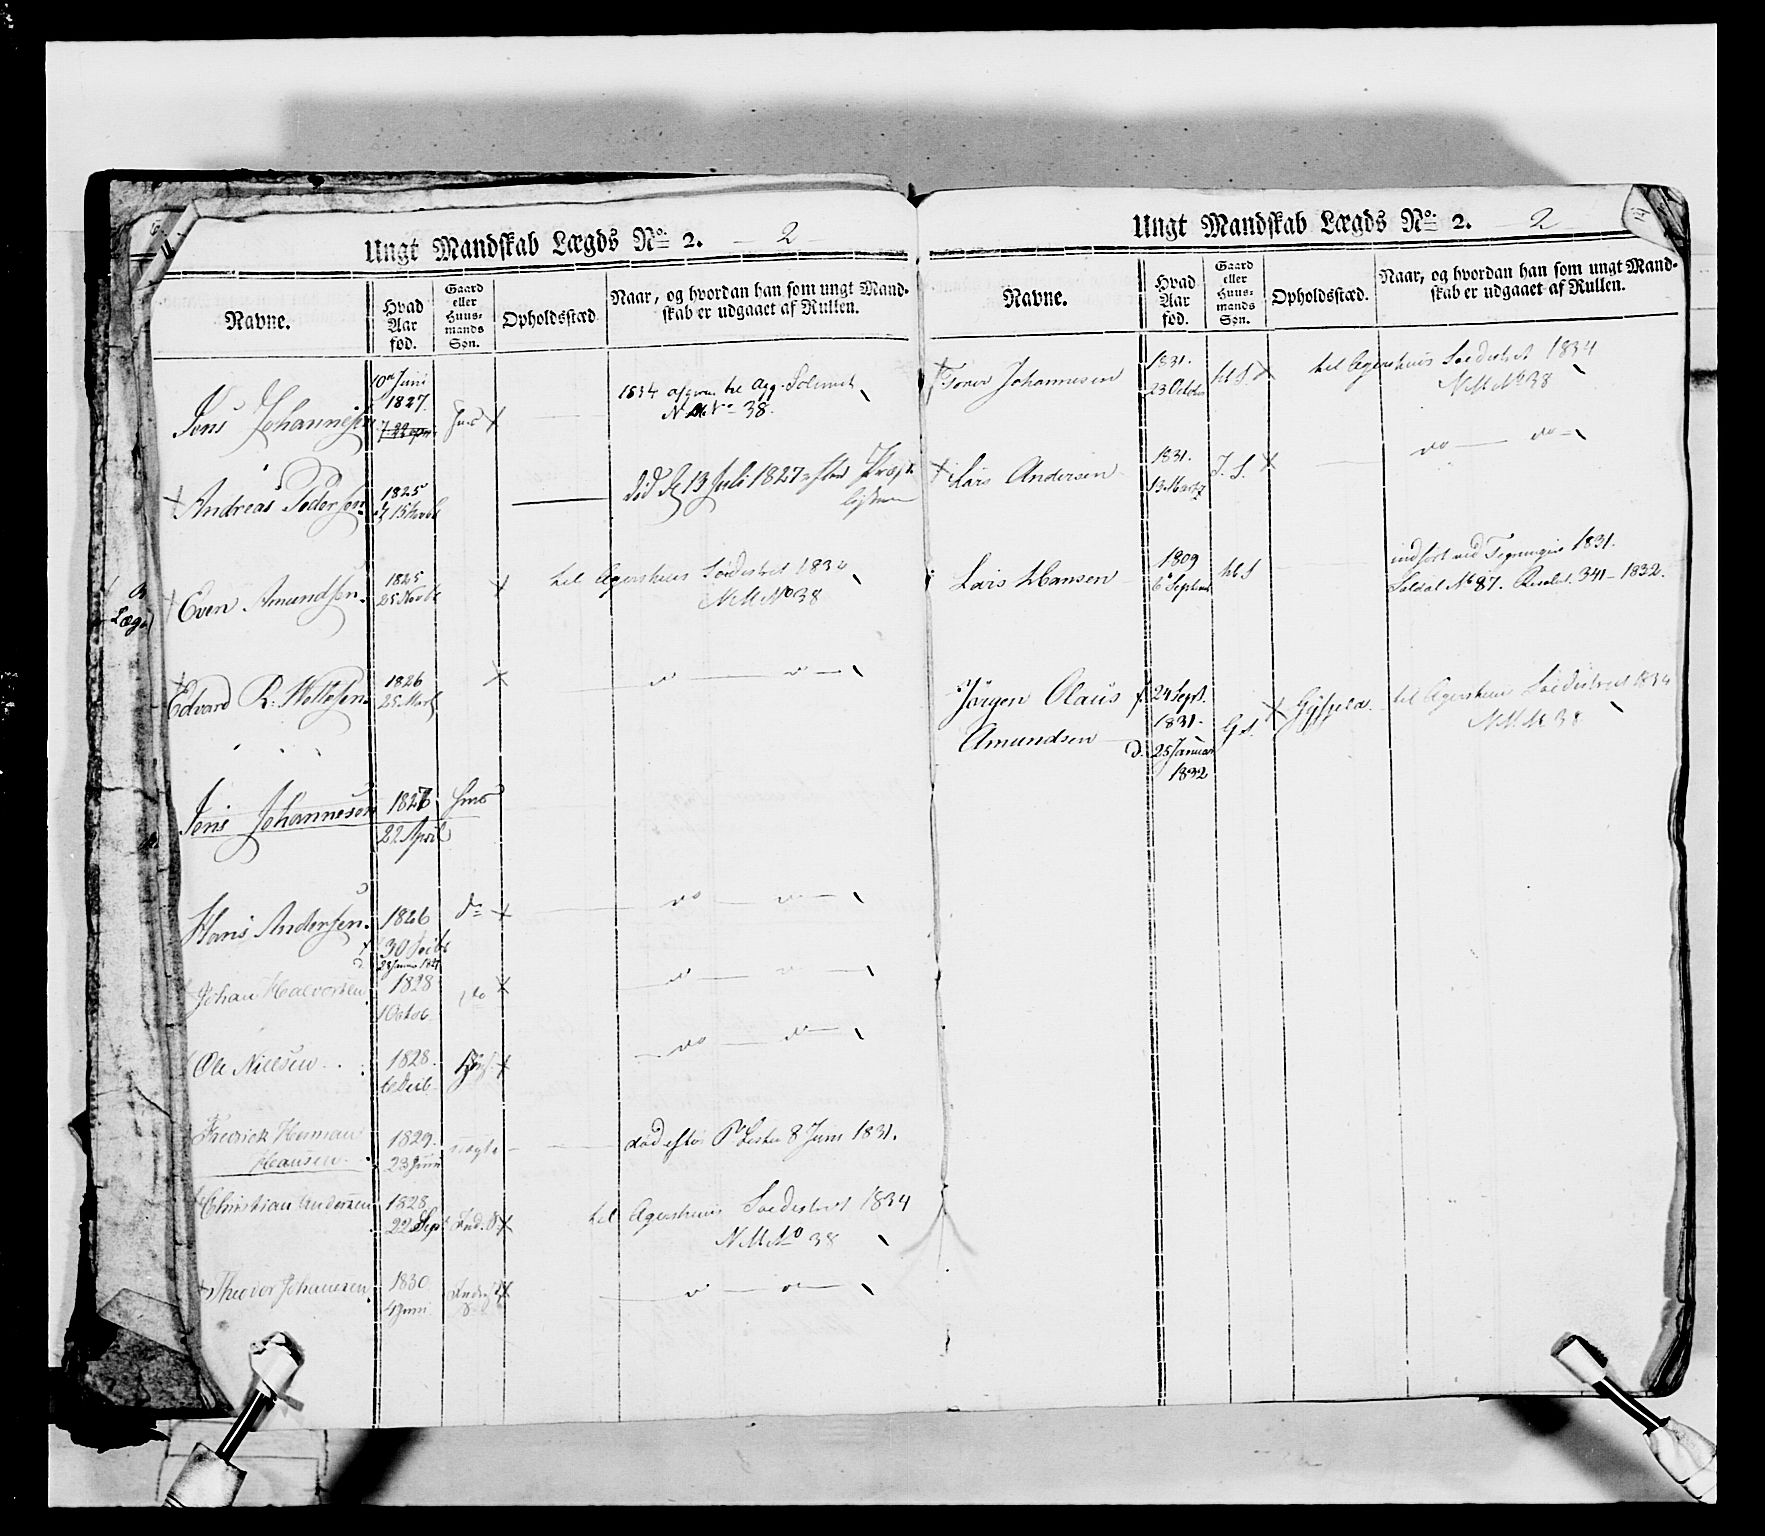 Ungt Mandskab Lægds No. 2. – 2 –
Navne.
Hvad Aar fød.
Gaard eller Huus-mands Søn.
Opholdsstæd
Naar, og hvordan han som ungt Mand-
skab er udgaaet af Rullen.
10de Juni
1827.
Jens Johannesen
1834
No 38.
Andreas Pedersen
1825
død d 13 Juli 1827
Lægd
Even Amundsen
1825
25 Novb
til Agershuus Söedistrict 1834
NM No 38
Edvard R.
1826
25 Marts
do do
Jens Johannesen
1826
Hms
22 April
Hans Andersen
1826
do
do do
30
d.
Johan Halvorsen
1828
do
do do
1 Octob
Ole Nielsen
1828
do do
Fredrick Herman
Hansen
1829.
23 Juni
død efter Pr Liste 8 Juni 1831.
Christian Andersen
1828
22 Sept
Ind. S
til Agershuus Söedistrict 1834
NM No 38
Theodor Johanesen
1830
4 Juni
do do
Ungt Mandskab Lægds No. 2. – 2
Navne.
Hvad Aar fød.
Gaard eller Huus-mands Søn.
Opholdsstæd.
Naar, og hvordan han som ungt Mand-
skab er udgaaet af Rullen.
Johannesen
1831.
23 Octobr
H S.
til Agershuus Söedistrict 1834
NM No 38
Lars Andersen
1831.
13 Marts
I. S.
do do
Lars Hansen
1809
6 Septembr
H S
indført ved Tegningen 1831.
Soldat No 87. Resolut. 341 – 1832.
Jørgen Olaus
Amundsen
f. 24 Sept.
1831.
d. 25 Januar
1832
G S.
til Agershuus Söedistrict 1834
NM No 38